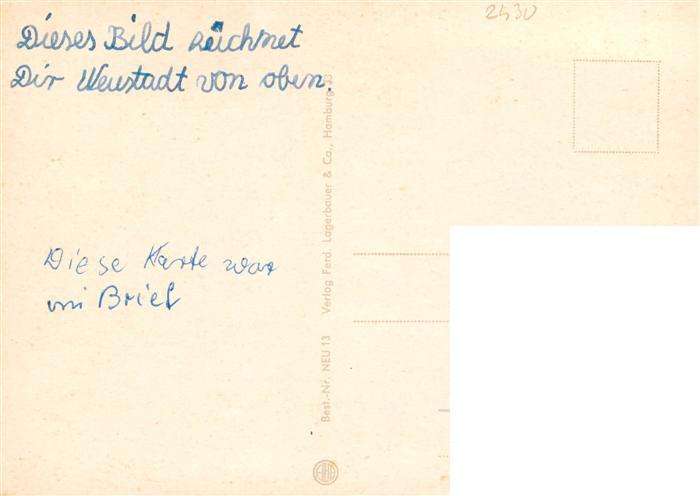 2430
Dieses Bild zeichnet
Dir Neustadt von oben.
Diese Karte war
im Brief
Best.-Nr. NEU 13 Verlag Ferd. Lagerbauer & Co., Hamburg 13